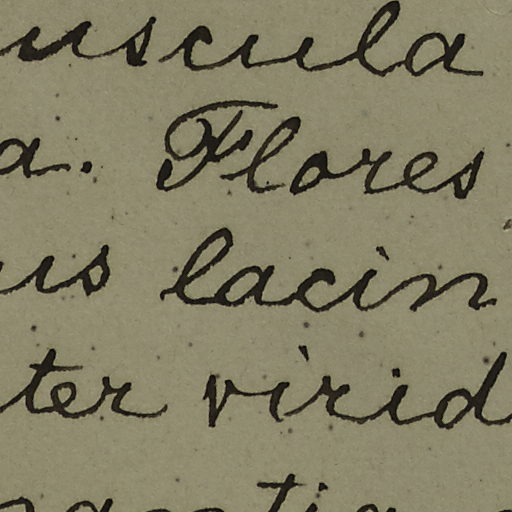 uscula
a. Flores
us lacin
ter virid